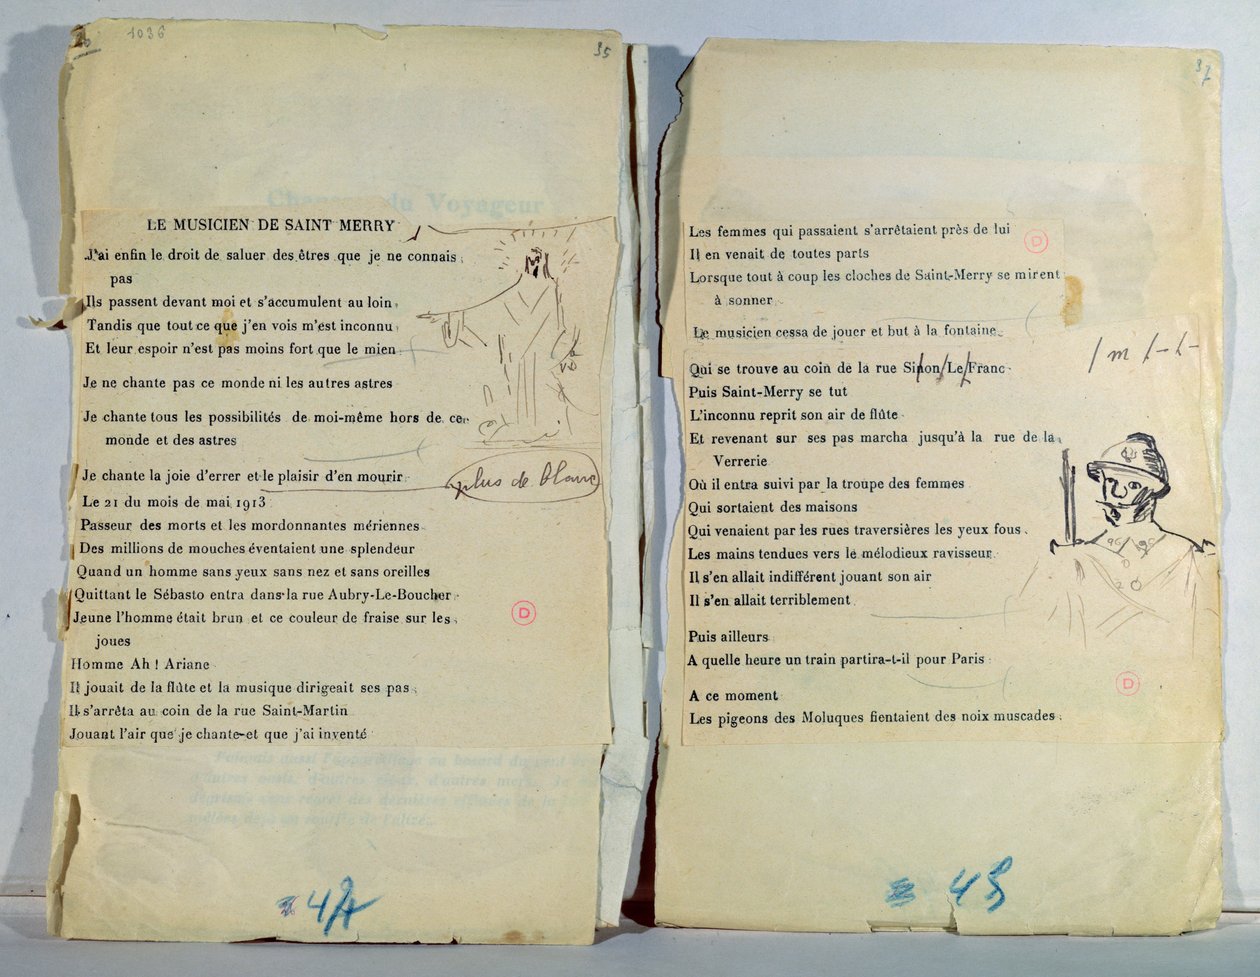 1036
35
LE MUSICIEN DE SAINT MERRY
J'ai enfin le droit de saluer des êtres que je ne connais
pas
Ils passent devant moi et s'accumulent au loin
Tandis que tout ce que j'en vois m'est inconnu
Et leur espoir n'est pas moins fort que le mien
Je ne chante pas ce monde ni les autres astres
Je chante tous les possibilités de moi-même hors de ce
monde et des astres
Je chante la joie d'errer et le plaisir d'en mourir
plus de blanc
Le 21 du mois de mai 1913
Passeur des morts et les mordonnantes mériennes
Des millions de mouches éventaient une splendeur
Quand un homme sans yeux sans nez et sans oreilles
Quittant le Sébasto entra dans la rue Aubry-Le-Boucher
Jeune l'homme était brun et ce couleur de fraise sur les
joues
Homme Ah ! Ariane
Il jouait de la flûte et la musique dirigeait ses pas
Il s'arrêta au coin de la rue Saint-Martin
Jouant l'air que je chante et que j'ai inventé
D
Chanson du Voyageur
37
Les femmes qui passaient s'arrêtaient près de lui
Il en venait de toutes parts
Lorsque tout à coup les cloches de Saint-Merry se mirent
à sonner
Le musicien cessa de jouer et but à la fontaine
D
Qui se trouve au coin de la rue Sinon Le Franc
/ m /-/-
Puis Saint-Merry se tut
L'inconnu reprit son air de flûte
Et revenant sur ses pas marcha jusqu'à la rue de la
Verrerie
Où il entra suivi par la troupe des femmes
Qui sortaient des maisons
Qui venaient par les rues traversières les yeux fous
Les mains tendues vers le mélodieux ravisseur
Il s'en allait indifférent jouant son air
Il s'en allait terriblement
Puis ailleurs
A quelle heure un train partira-t-il pour Paris
A ce moment
Les pigeons des Moluques fientaient des noix muscades
D
45